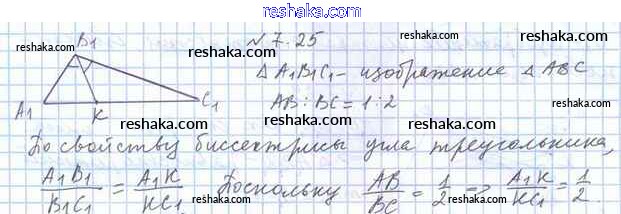 reshaka.com
B1
reshaka.com
№ 7.25
reshaka.com
reshaka.com
△ A1B1C1 - изображение △ ABC
A1
K
C1
AB : BC = 1 : 2
reshaka.com
reshaka.com
reshaka.com
По свойству биссектрисы угла треугольника,
A1B1/B1C1 = A1K/KC1. Поскольку AB/BC = 1/2 => A1K/KC1 = 1/2.
reshaka.com
reshaka.com
reshaka.com